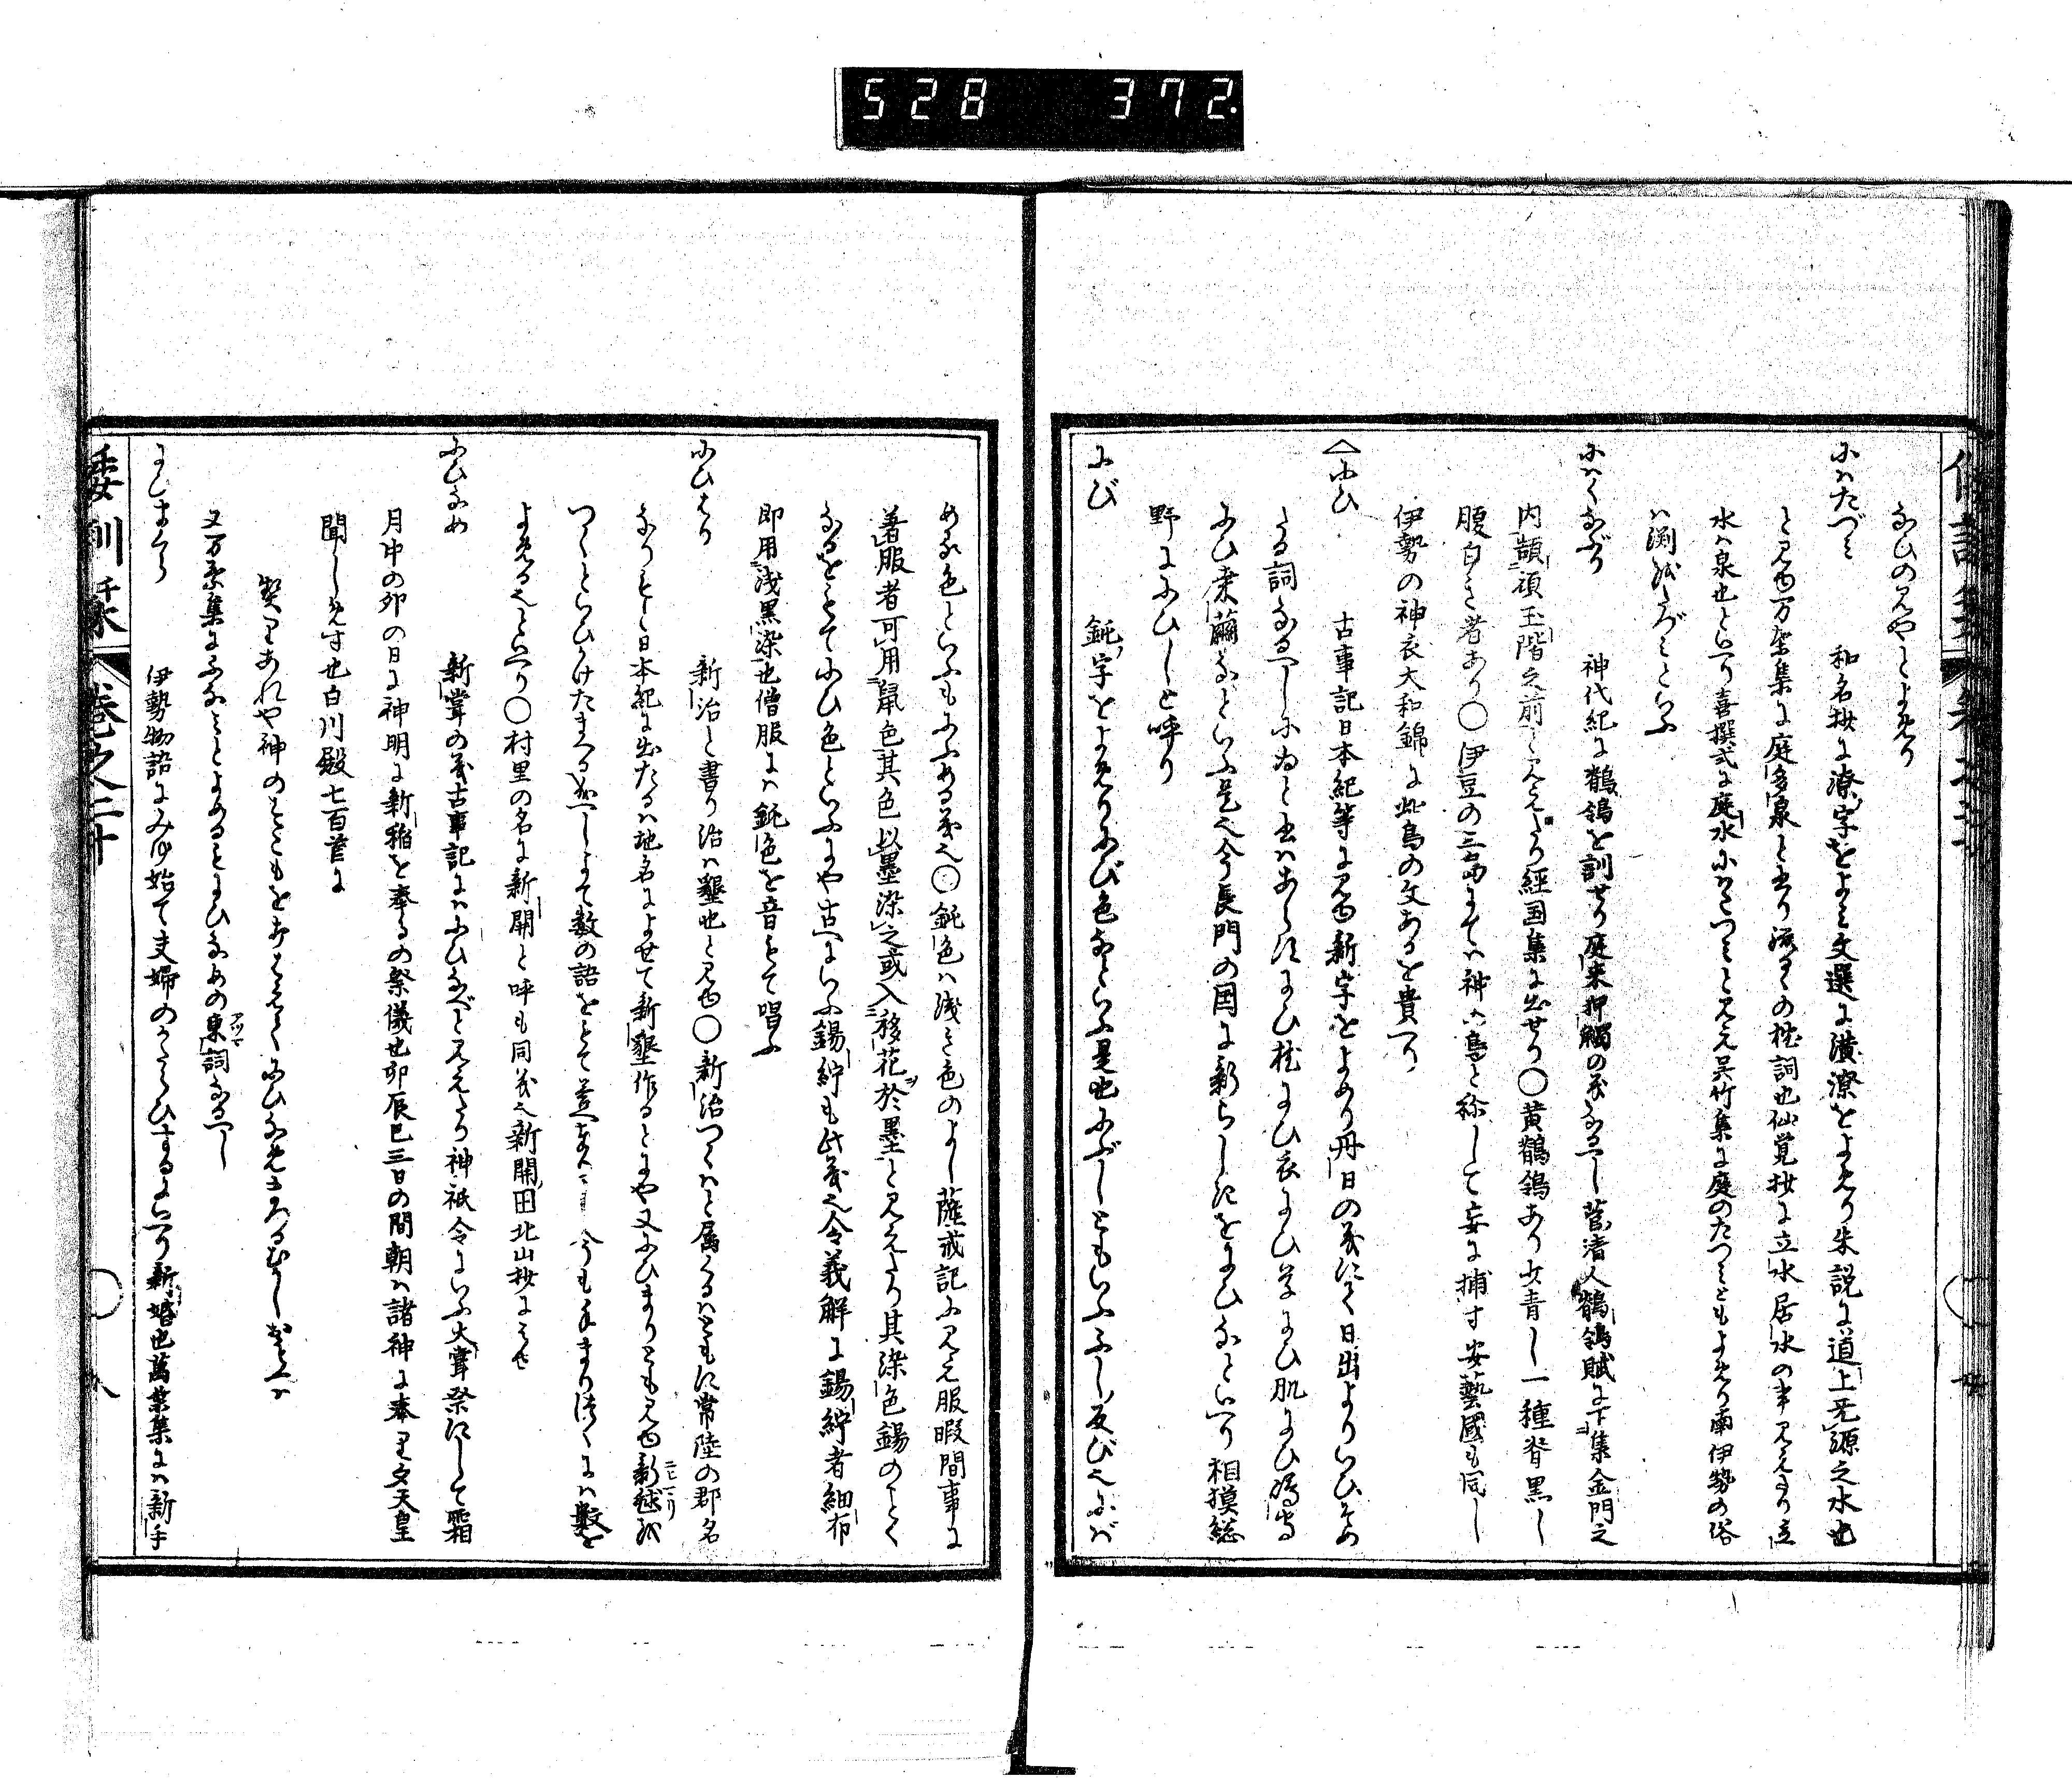 528 372
なひのみやとよめり
にはたづみ 和名抄に潦字をよみ文選に潢潦をよめり朱説に道上无源之水也
と見ゆ万葉集に庭多泉と書り流るゝの枕詞也仙覚抄に立水居水の事見えたり立
水は泉也といへり喜撰式に庭水にはたつみと見え呉竹集に庭のたつみともよめり南伊勢の俗
は渕をたづみといふ
にはくなぶり 神代紀に鶺鴒を訓せり庭来押觸の義なるへし菅清人鶺鴒賦に下集金門之
内顡頑玉階之前と見えたり經国集に出せり○黄鶺鴒あり少青し一種脊黒し
腹白き者あり○伊豆の三嶋にては神の鳥と称して妄に捕す安藝國も同し
伊勢の神衣大和錦に此鳥の文あるを貴へり
にひ 古事記日本紀等に見ゆ新字をよめり丹日の義にて日出よりいひそめ
たる詞なるへしにゐと書はあしゝにひ枕にひ衣にひ草にひ肌にひ嶋守
にひ桑繭などいふ是也今長門の国に新らしきをにひなといへり相摸総
野ににひしと呼り
にび 鈍字をよめりにび色なといふ是也にぶしともいふふし反び也にば
める色といふもにふめる義也○鈍色は浅き色のよし薩戒記に見え服暇間事に
著服者可用鼠色其色以墨染之或入移花於墨と見えたり其染色錫のことく
なるをもてにひ色といふにや古へにいふ錫紵も此義也令義解に錫紵者細布
即用浅黒染也僧服には鈍色を音もて唱ふ
にひはり 新治と書り治は墾也と見ゆ○新治つくはと属くるはともに常陸の郡名
なりもし日本紀に出たるは地名によせて新墾作るとにや又にひまりとも見ゆ新毬を
つくといひかけたまへるなへしよて数の語をもて答へ奉 今もまりつくには數を
よめる也といへり○村里の名に新開と呼も同義也新開田北山抄に見ゆ
にひなめ 新甞の義古事記にはにひなべと見えたり神祇令にいふ大甞祭にして霜
月中の卯の日に神明に新稲を奉るの祭儀也卯辰巳三日の間朝は諸神に奉り夕天皇
聞しめす也白川殿七百首に
契りあれや神のすこもをうちはらひにひなめまつるむかしおもへは
又万葉集にふなみとよめるもにひなめの東詞なるへし
にひまくら 伊勢物語にみゆ始て夫婦のかたらひするよしいへり新婚也萬葉集には新手
倭訓栞 巻之二十